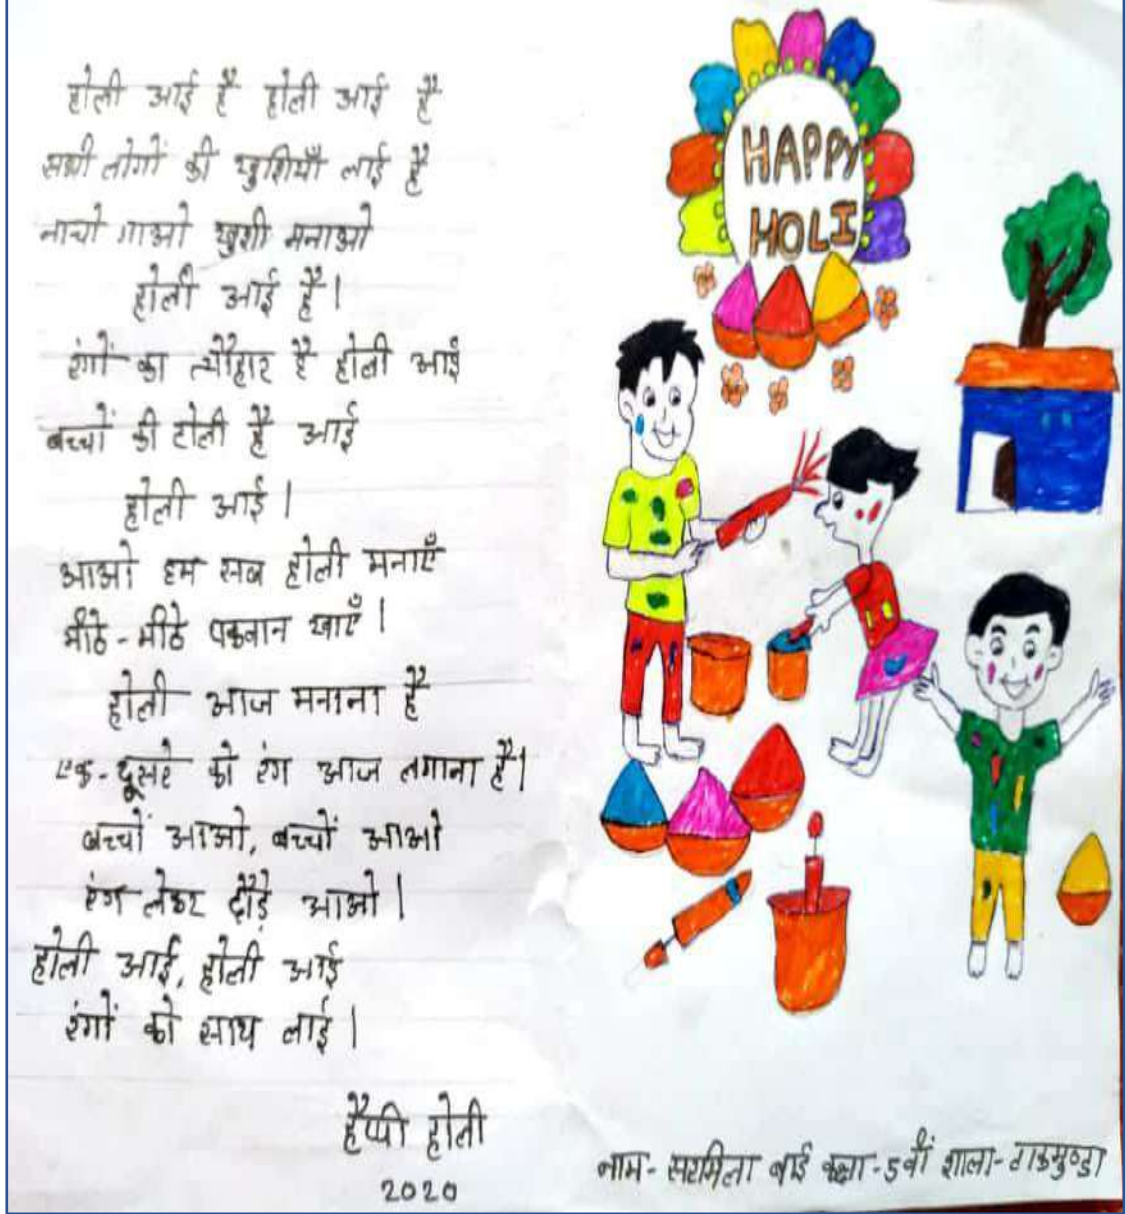 होली आई है होली आई है
सभी लोगों की खुशियाँ लाई है
नाचो गाओ खुशी मनाओ
होली आई है।
रंगों का त्यौहार है होली आई
बच्चों की टोली है आई
होली आई।
आओ हम सब होली मनाएँ
मीठे-मीठे पकवान खाएँ।
होली आज मनाना है
एक-दूसरे को रंग आज लगाना है।
बच्चों आओ, बच्चों आओ
रंग लेकर दौड़े आओ।
होली आई, होली आई
रंगों को साथ लाई।
हैप्पी होली
2020
HAPPY
HOLI
नाम- सरमिला बाई कक्षा-5वीं शाला-टाकमुण्डा